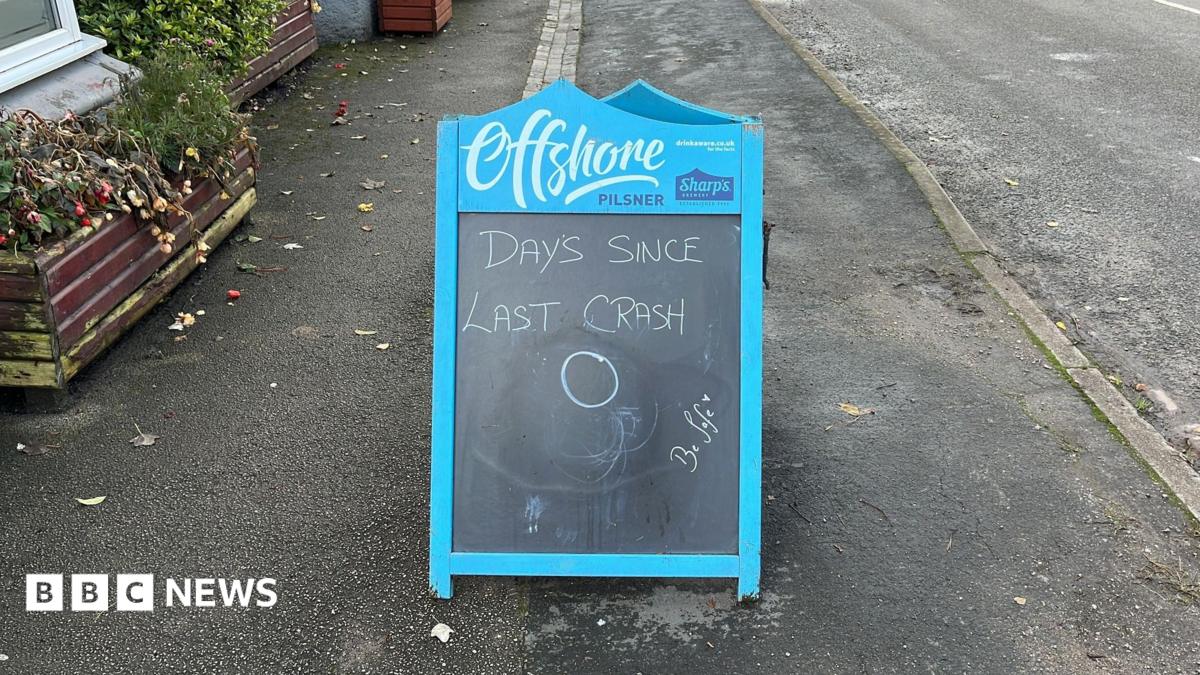 Offshore
PILSNER
drinkaware.co.uk
for the facts
Sharp's
BREWERY
ESTABLISHED 1994
DAY'S SINCE
LAST CRASH
0
Be Safe
BBC NEWS